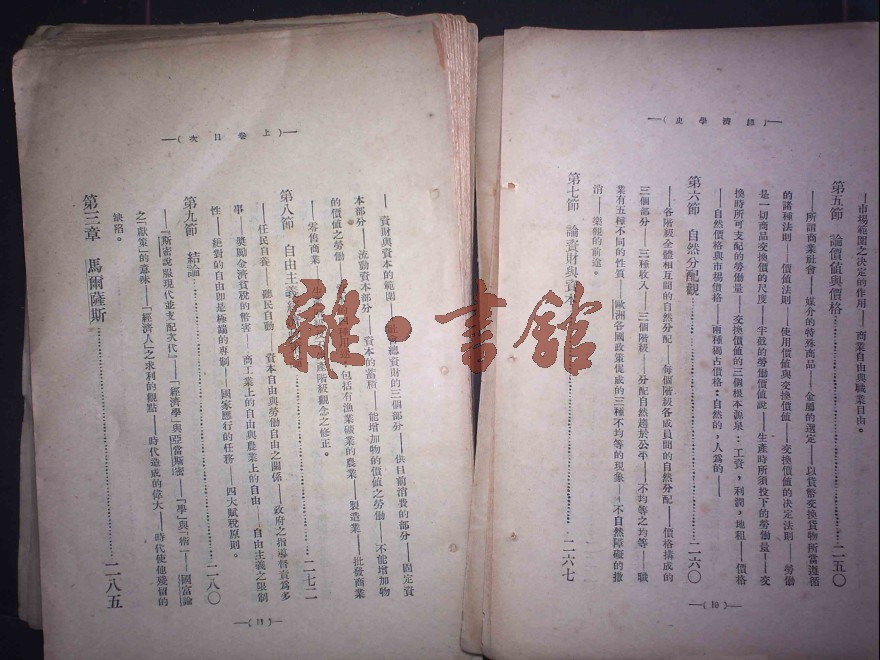 —(經濟學史)—
—市場範圍之決定的作用——商業自由與職業自由。
第五節 論價値與價格……二五〇
——所謂商業社會——媒介的特殊商品——金屬的選定——以貨幣交換貨物所當遵循
的諸種法則——價値法則——使用價値與交換價値——交換價値的決定法則——勞働
是一切商品交換價的尺度——半截的勞働價値說——生產時所須投下的勞働量——交
換時所可支配的勞働量——交換價値的三個根本源泉：工資，利潤，地租——價格
——自然價格與市場價格——兩種獨占價格：自然的，人爲的——
第六節 自然分配觀……二六〇
——各階級全體相互間的自然分配——每個階級各成員間的自然分配——價格構成的
三個部分——三種收入——三個階級——分配自然趨於公平——不均等之均等——職
業有五種不同的性質——歐洲各國政策促成的三種不均等的現象——不自然障礙的撤
消——樂觀的前途。
第七節 論資財與資本……二六七
—(10)—
—(上卷目次)—
——資財與資本的範圍——社會總資財的三個部分——供目前消費的部分——固定資
本部分——流動資本部分——資本的蓄積——能增加物的價値之勞働——不能增加物
的價値之勞働——包括有漁業礦業的農業——製造業——批發商業
——零售商業——產階級觀念之修正。
第八節 自由主義……二七二
——任民自義——聽民自動——資本自由與勞働自由之關係——政府之指導督責爲多
事——獎勵金濟貧稅的幣害——商工業上的自由與農業上的自由——自由主義之限制
性——絕對的自由卽是極端的專制——國家應行的任務——四大賦稅原則。
第九節 結論……二八〇
——『斯密說服現代並支配次代』——「經濟學」與亞當斯密——「學」與「術」——國富論
之「獻策」的意味——「經濟人」之求利的觀點——時代造成的偉大——時代使他殘留的
缺陷。
第三章 馬爾薩斯……二八五
—(11)—
雜·書館